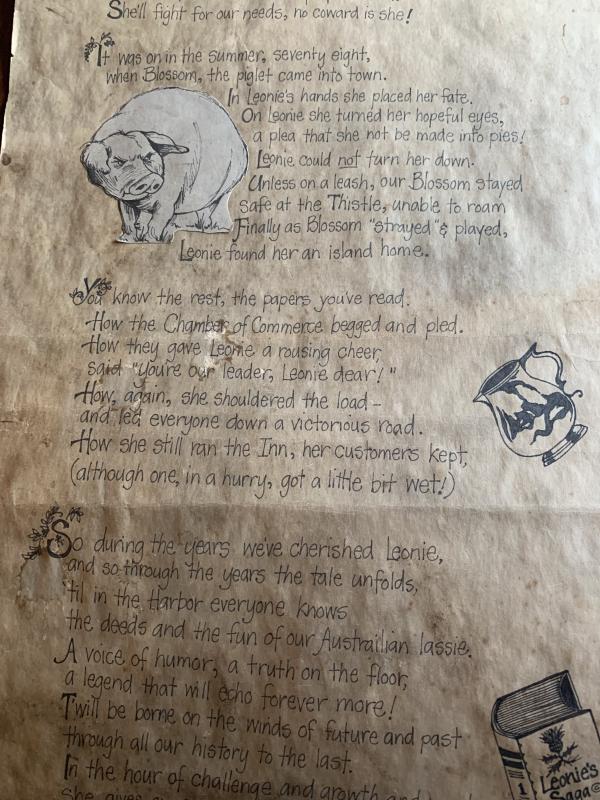 She'll fight for our needs, no coward is she!
It was on in the summer, seventy eight,
when Blossom, the piglet came into town.
In Leonie's hands she placed her fate.
On Leonie she turned her hopeful eyes,
a plea that she not be made into pies!
Leonie could not turn her down.
Unless on a leash, our Blossom stayed
safe at the Thistle, unable to roam
Finally as Blossom "strayed" & played,
Leonie found her an island home.
You know the rest, the papers you've read.
How the Chamber of Commerce begged and pled.
How they gave Leonie a rousing cheer,
said "you're our leader, Leonie dear!"
How, again, she shouldered the load –
and led everyone down a victorious road.
How she still ran the Inn, her customers kept,
(although one, in a hurry, got a little bit wet!)
So during the years we've cherished Leonie,
and so through the years the tale unfolds,
'til in the Harbor everyone knows
the deeds and the fun of our Austrailian lassie.
A voice of humor, a truth on the floor,
a legend that will echo forever more!
T'will be borne on the winds of future and past
through all our history to the last.
In the hour of challenge and growth and
She gives
1
Leonie's
Saga ©